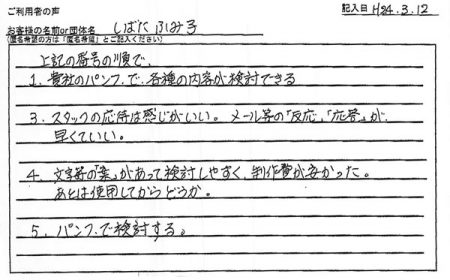 ご利用者の声
記入日 H24.3.12
お客様の名前or団体名 しばた ふみ子
(匿名希望の方は「匿名希望」とご記入ください)
上記の番号の順で、
1. 貴社のパンフで、各種の内容が検討できる
3. スタッフの応待は感じがいい。メール等の「反応」、「応答」が
早くていい。
4. 文字等の「案」があって検討しやすく、制作費が安かった。
あとは使用してからどうか。
5. パンフで検討する。